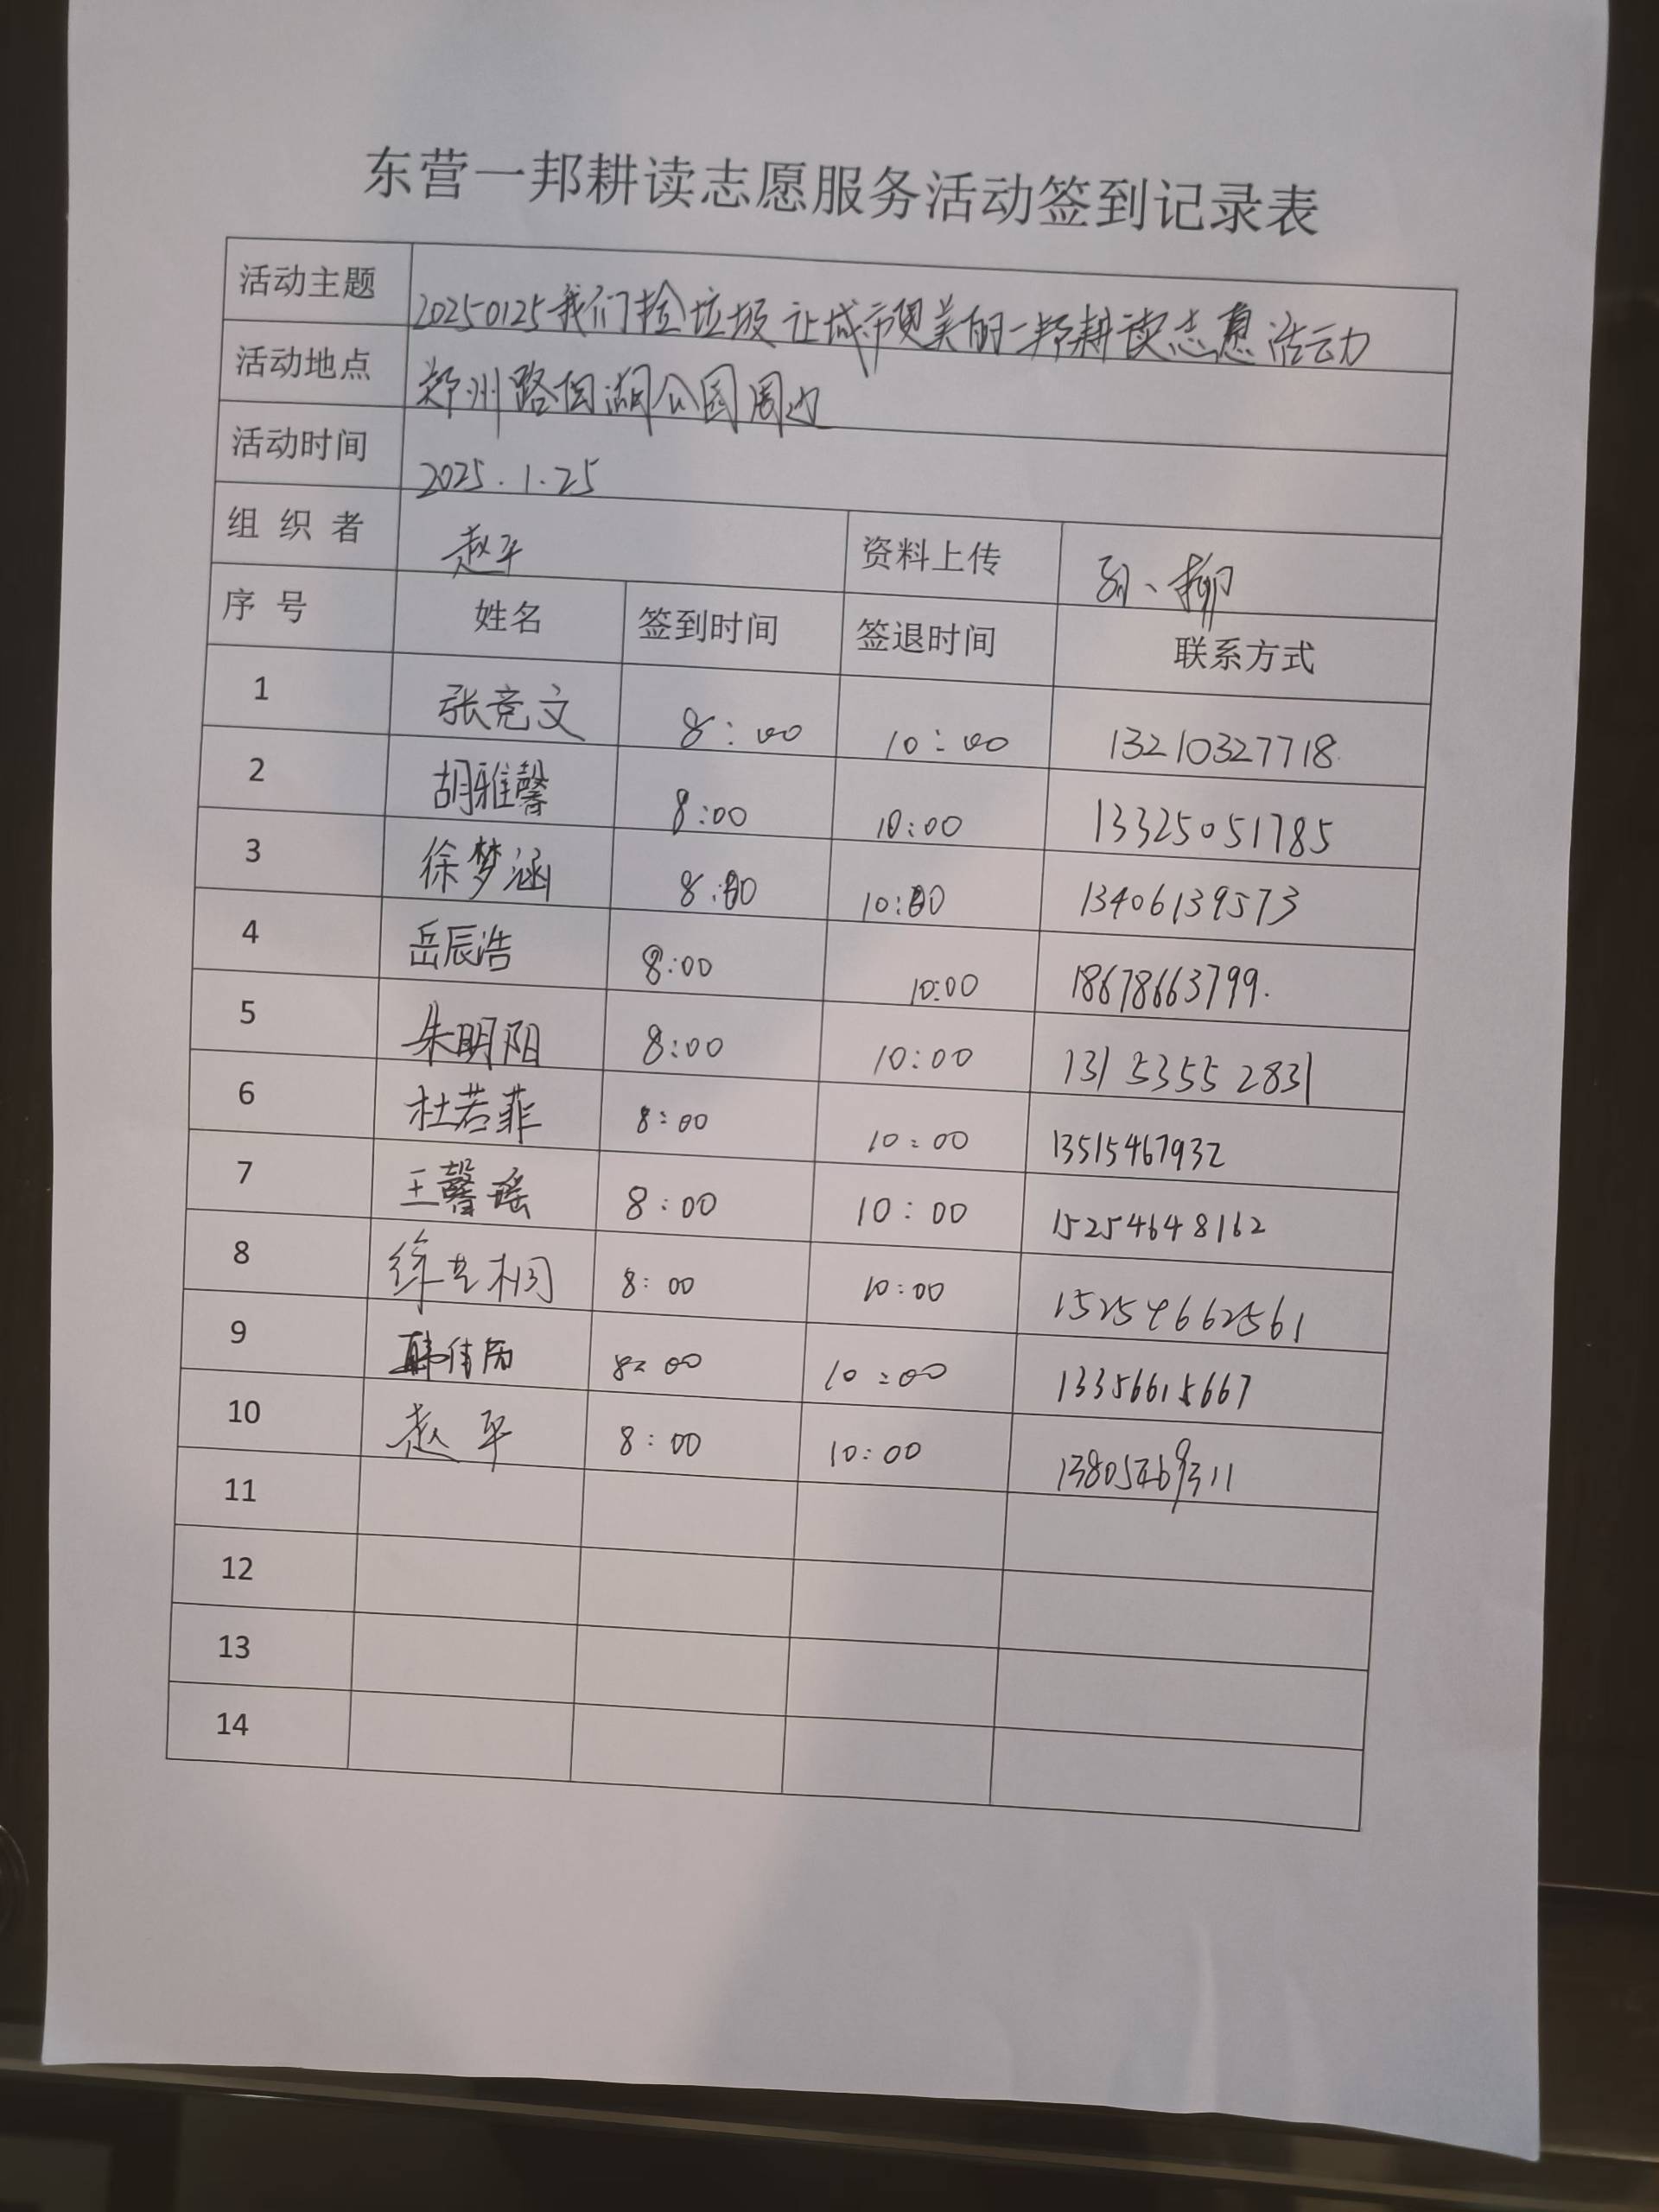 东营一邦耕读志愿服务活动签到记录表
活动主题 20250125我们捡垃圾 让城市更美的一邦耕读志愿活动
活动地点 郑州路 湖公园周边
活动时间 2025.1.25
组 织 者 赵平 资料上传 孙、柳
序 号 姓名 签到时间 签退时间 联系方式
1 张竞文 8:00 10:00 13210327718
2 胡雅馨 8:00 10:00 13325051785
3 徐梦涵 8:00 10:00 13406139573
4 岳辰浩 8:00 10:00 18678663799.
5 朱明阳 8:00 10:00 131 5355 2831
6 杜若菲 8:00 10:00 13515467932
7 王馨瑶 8:00 10:00 15254648162
8 徐 桐 8:00 10:00 15254662561
9 韩佳 8:00 10:00 13356615667
10 赵平 8:00 10:00 13805469311
11
12
13
14